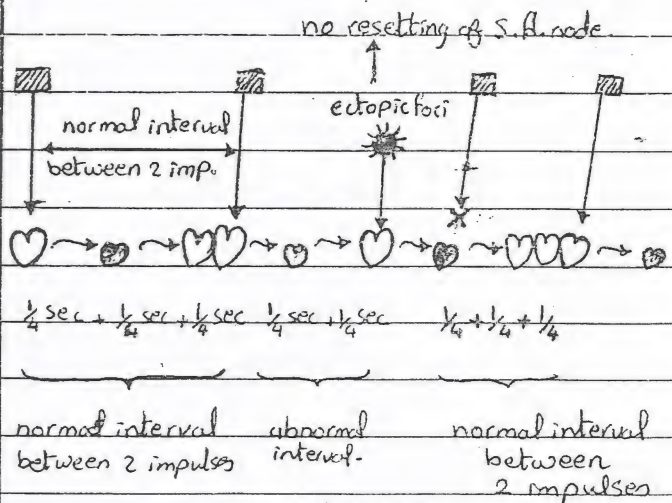 no resetting of S.A. node.
ectopic foci
normal interval
between 2 imp.
1/4 sec + 1/4 sec + 1/4 sec 1/4 sec + 1/4 sec 1/4 + 1/4 + 1/4
normal interval
between 2 impulses
abnormal
interval.
normal interval
between
2 impulses